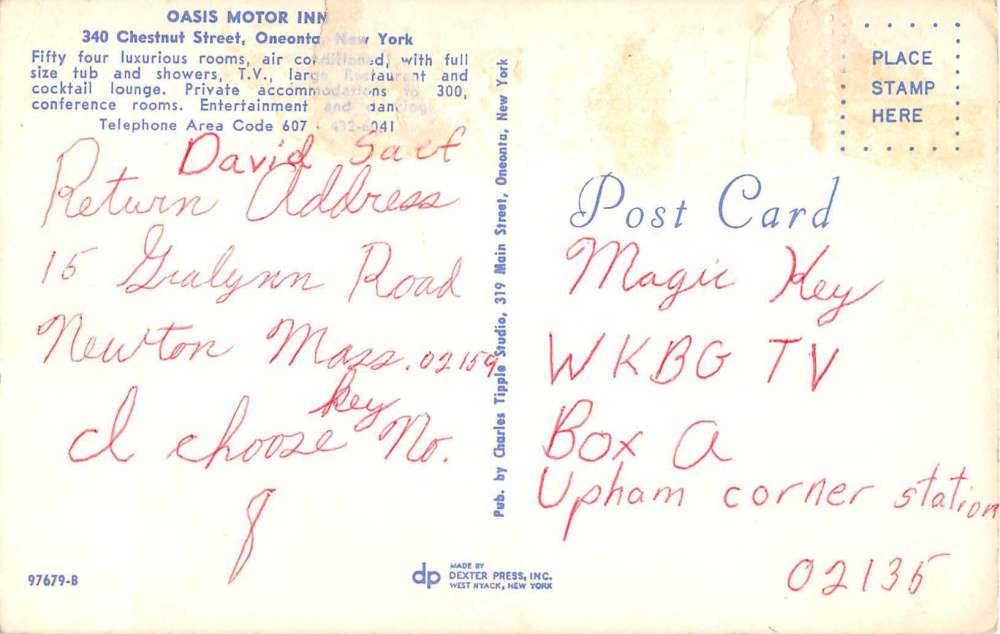 OASIS MOTOR INN
340 Chestnut Street, Oneonta, New York
Fifty four luxurious rooms, air conditioned, with full
size tub and showers, T.V., large Restaurant and
cocktail lounge. Private accommodations to 300,
conference rooms. Entertainment and dancing.
Telephone Area Code 607 - 432-6041
David
Return Address
15 Gralynn Road
Newton Mass. 02159
I choose key No.
8
97679-B
Pub. by Charles Tipple Studio, 319 Main Street, Oneonta, New York
dp
MADE BY
DEXTER PRESS, INC.
WEST NYACK, NEW YORK
PLACE
STAMP
HERE
Post Card
Magic Key
WKBG TV
Box A
Upham corner station
02135